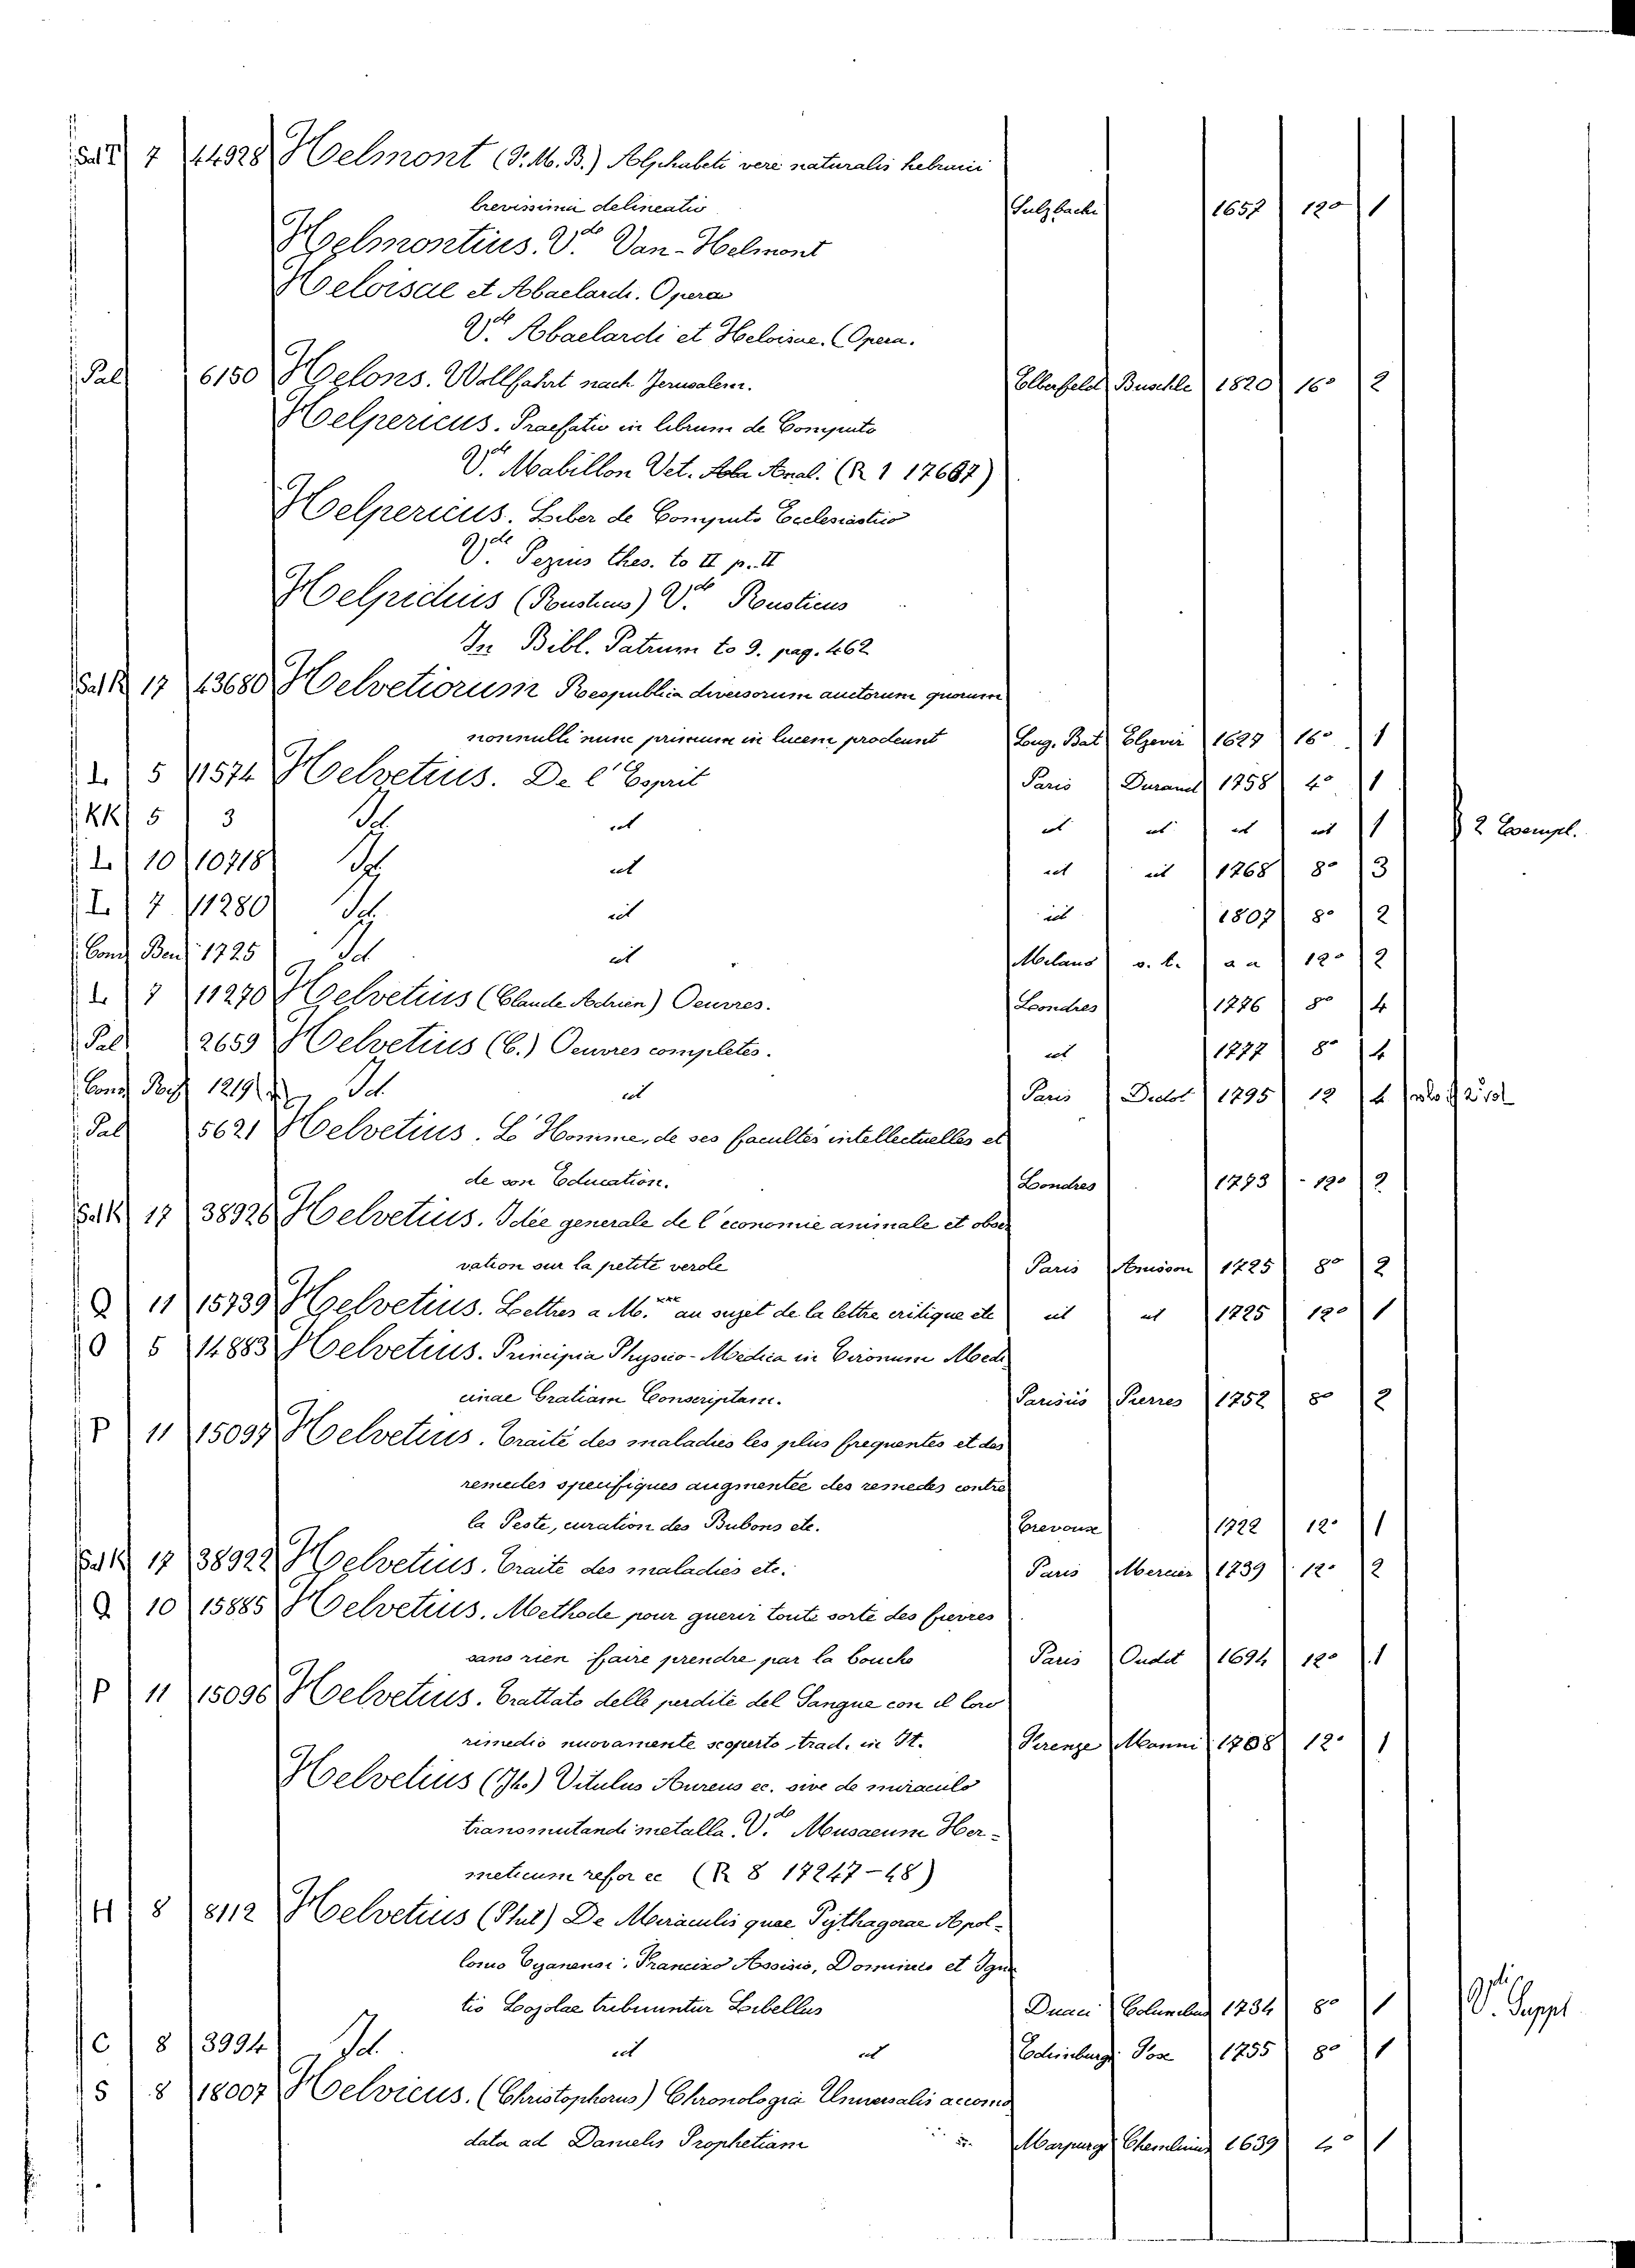 Sal T 7 44928 Helmont (F. M. B.) Alphabeti vere naturalis hebraici
brevissima delineatio Sulzbachi 1657 12° 1
Helmontius. V.de Van-Helmont
Heloisae et Abaelardi. Opera
V.de Abaelardi et Heloisae. Opera.
Pal 6150 Helons. Wallfahrt nach Jerusalem. Elberfeld Buschle 1820 16° 2
Helpericus. Praefatio in librum de Computo
V.de Mabillon Vet. Anal. (R 1 17687)
Helpericus. Liber de Computo Ecclesiastico
V.de Pezius thes. to II p. II
Helpidius (Rusticus) V.de Rusticus
In Bibl. Patrum to 9. pag. 462
Sal R 17 43680 Helvetiorum Respublica diversorum auctorum quorum
nonnulli nunc primum in lucem prodeunt Lug. Bat Elzevir 1627 16° 1
L 5 11574 Helvetius. De l'Esprit Paris Durand 1758 4° 1
KK 5 3 Id. ut ut ut ut ut 1 2 Exempl.
L 10 10718 Id. ut ut ut 1768 8° 3
L 7 11280 Id. ut ut 1807 8° 2
Cons Bend 1725 Id ut Milano v. l. a a 12° 2
L 7 11270 Helvetius (Claude Adrien) Oeuvres. Londres 1776 8° 4
Pal 2659 Helvetius (C.) Oeuvres completes. ut 1777 8° 4
Cons 1219 Id. ut Paris Didot 1795 12 4
Pal 5621 Helvetius. L'Homme, de ses facultés intellectuelles et
de son Education. Londres 1773 - 12° 2
Sal K 17 38926 Helvetius. Idée generale de l'economie animale et obser
vation sur la petite verole Paris Anisson 1725 8° 2
Q 11 15739 Helvetius. Lettres a M.xxx au sujet de la lettre critique etc ut ut 1725 12° 1
O 5 14883 Helvetius. Principia Physico-Medica in Tironum Medi
cinae Gratiam Conscriptam. Parisiis Pierres 1752 8° 2
P 11 15097 Helvetius. Traité des maladies les plus frequentes et des
remedes specifiques augmentée des remedes contre
la Peste, curation des Bubons etc. Trevoux 1722 12° 1
Sal K 17 38922 Helvetius. Traite des maladies etc. Paris Mercier 1739 12° 2
Q 10 15885 Helvetius. Methode pour guerir toute sorte des fievres
sans rien faire prendre par la bouche Paris Oudit 1694 12° 1
P 11 15096 Helvetius. Trattato delle perdite del Sangue con il loro
rimedio nuovamente scoperto trad. in It. Firenze Manni 1708 12° 1
Helvetius (Jh.) Vitulus Aureus ec. sive de miraculo
transmutandi metalla. V.de Musaeum Her-
meticum refor ec (R 8 17247-48)
H 8 8112 Helvetius (Phil) De Miraculis quae Pythagorae Apol-
lonio Tyanensi. Francisco Assisio, Dominico et Igna
tio Lojolae tribuuntur Libellus Duaci Columbus 1734 8° 1 V. Suppl
C 8 3994 Id. ut ut Edimburgi Pose 1755 8° 1
S 8 18007 Helvicus. (Christophorus) Chronologia Universalis accomo
data ad Danielis Prophetiam Marpurgi Chemlinus 1639 4° 1